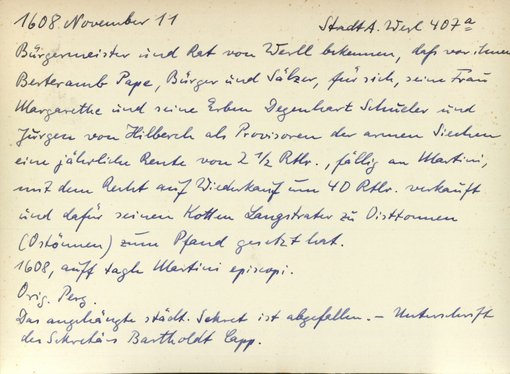 1608. November 11 Stadt A. Werl 407a
Bürgermeister und Rat von Werll bekennen, daß vor ihnen
Berteramb Pape, Bürger und Sälzer, für sich, seine Frau
Margarethe und seine Erben Degenhart Schueler und
Jürgen von Hilbeck als Provisoren der armen Siechen
eine jährliche Rente von 2 1/2 Rtlr., fällig an Martini,
mit dem Recht auf Wiederkauf um 40 Rtlr. verkauft
und dafür seinen Kotten Langstrater zu Oisttonnen
(Ostönnen) zum Pfand gesetzt hat.
1608, auff tagh Martini episcopi.
Orig. Perg.
Das angehängte städt. Sekret ist abgefallen. – Unterschrift
des Sekretärs Bartholdt Capp.